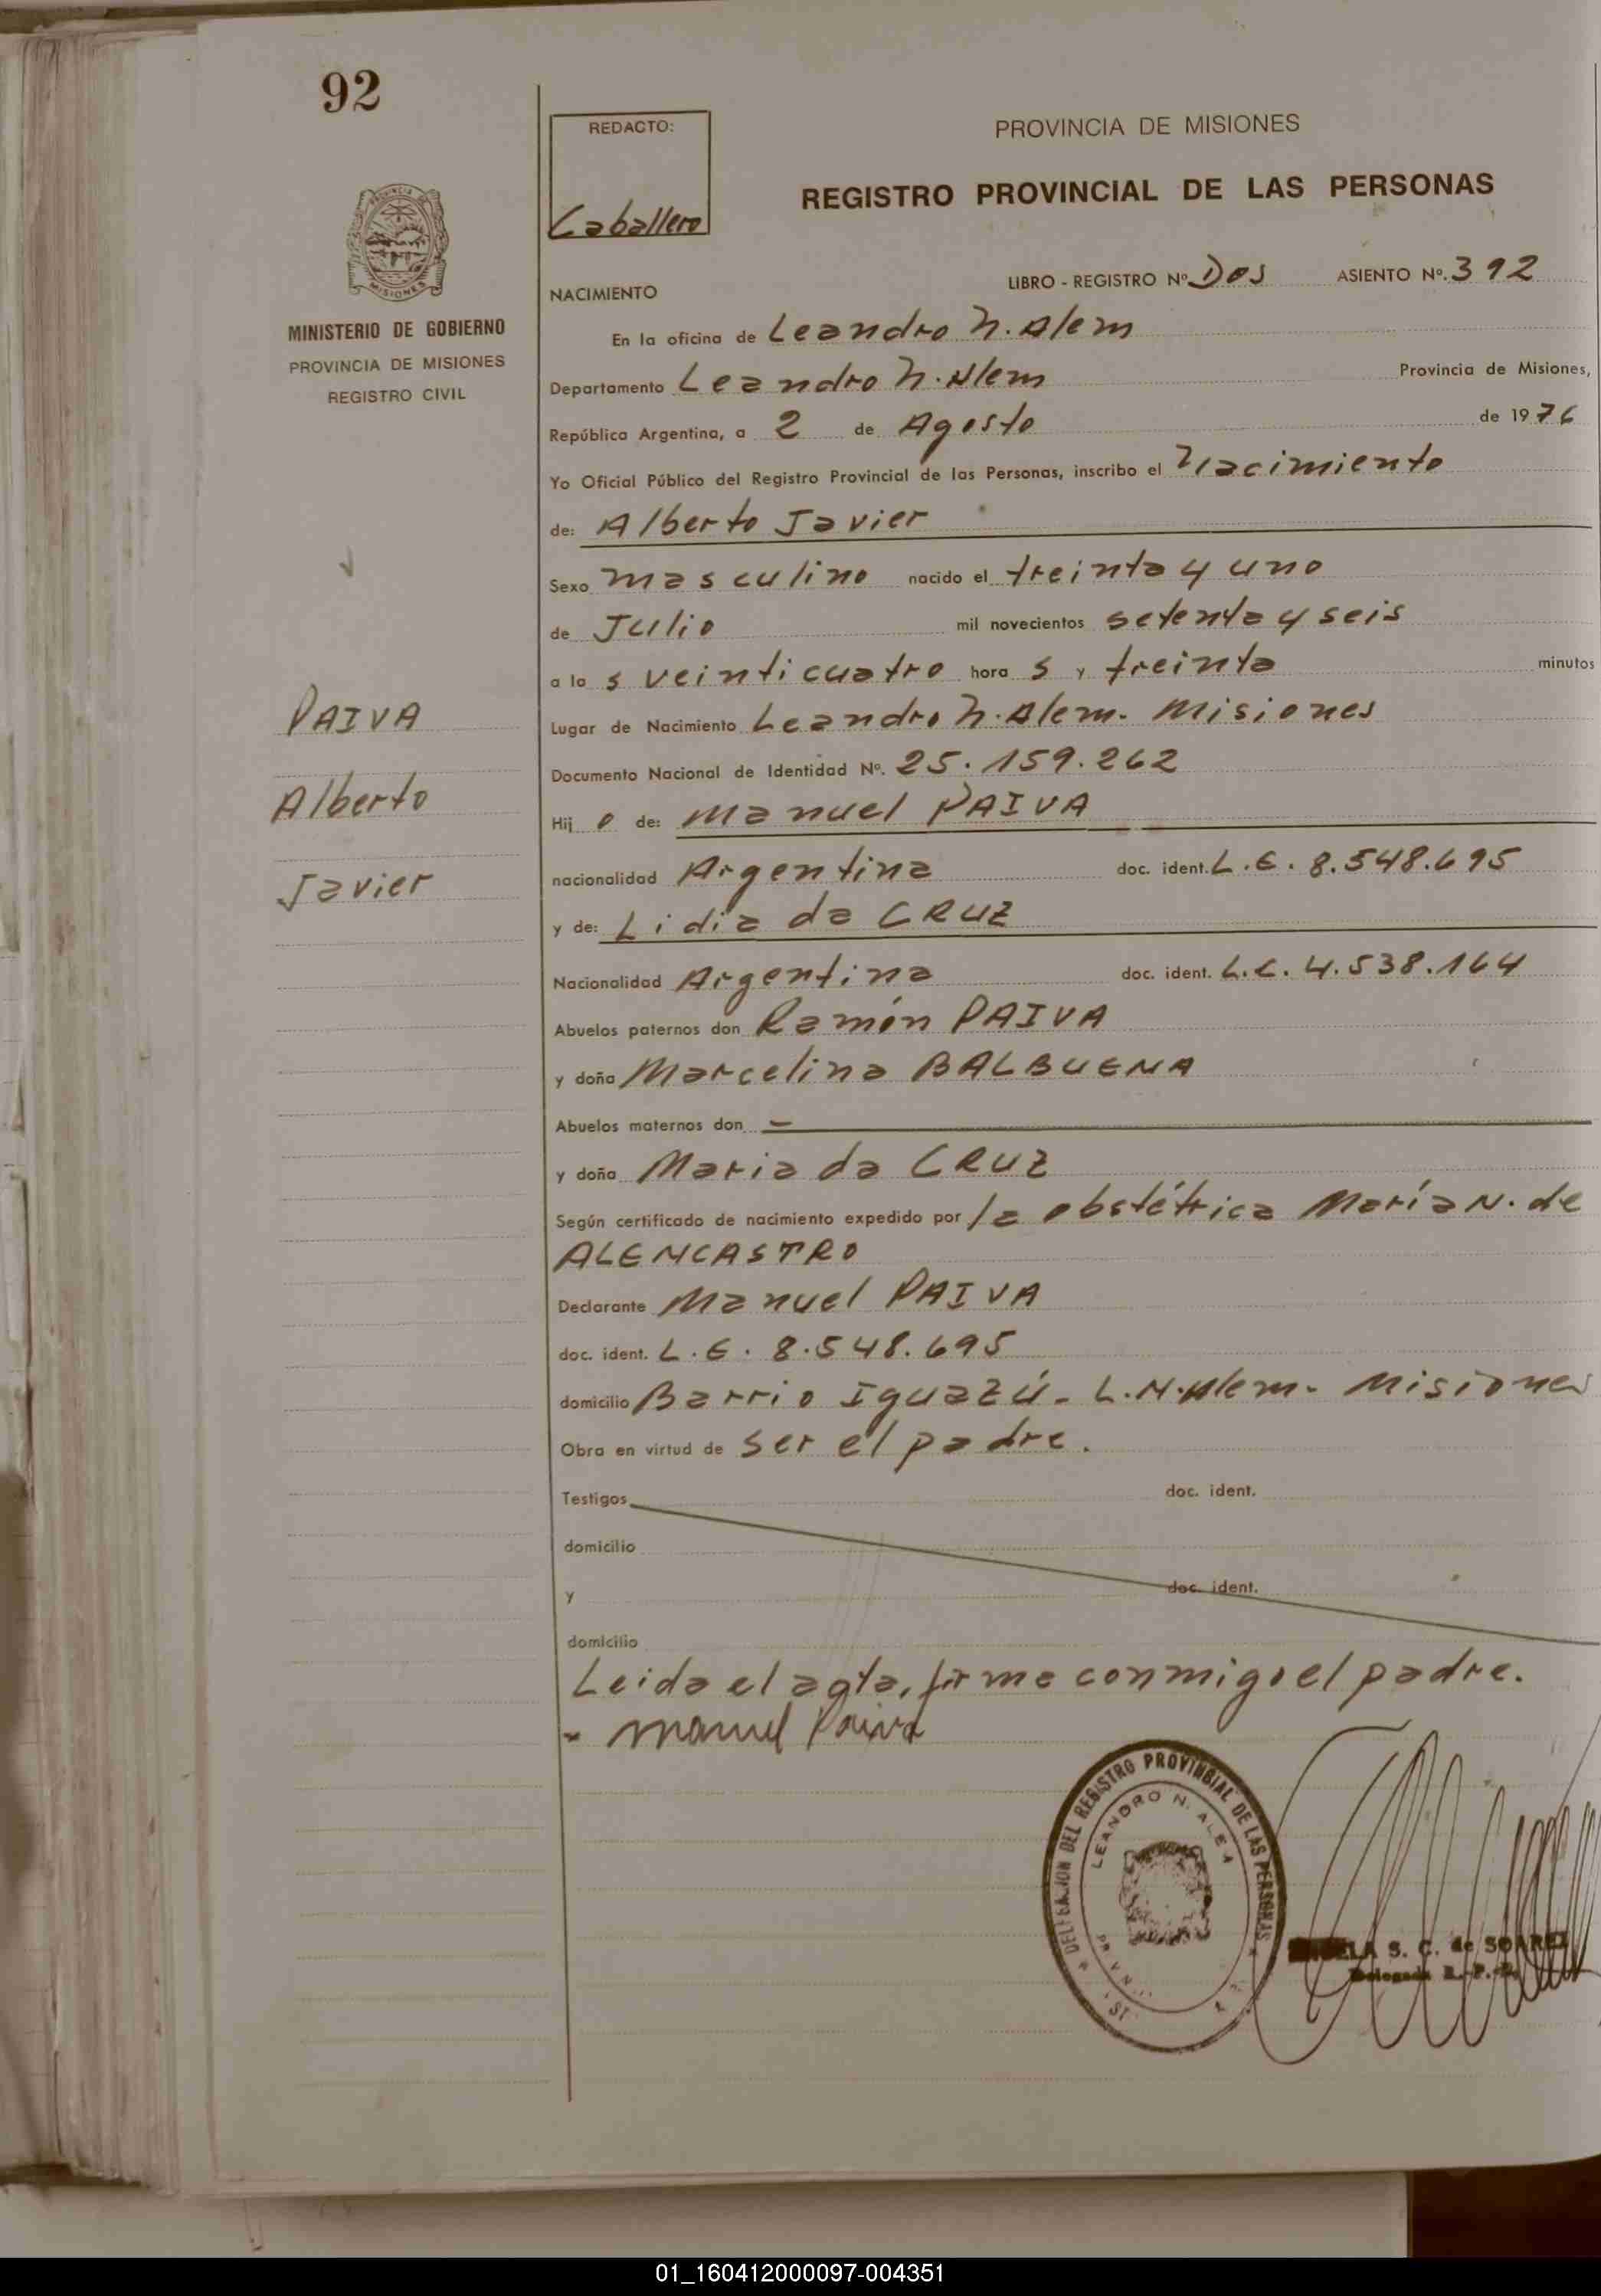 92
REDACTO:
Caballero
PROVINCIA DE MISIONES
REGISTRO PROVINCIAL DE LAS PERSONAS
MINISTERIO DE GOBIERNO
PROVINCIA DE MISIONES
REGISTRO CIVIL
NACIMIENTO
LIBRO - REGISTRO Nº Dos ASIENTO Nº. 392
En la oficina de Leandro N. Alem
Departamento Leandro N. Alem Provincia de Misiones,
República Argentina, a 2 de Agosto de 1976
Yo Oficial Público del Registro Provincial de las Personas, inscribo el Nacimiento
de: Alberto Javier
Sexo masculino nacido el treinta y uno
de Julio mil novecientos setenta y seis
a las veinticuatro horas y treinta minutos
Lugar de Nacimiento Leandro N. Alem - Misiones
Documento Nacional de Identidad Nº. 25.159.262
Hijo de: Manuel PAIVA
nacionalidad Argentina doc. ident. L.E. 8.548.695
y de: Lidia da CRUZ
Nacionalidad Argentina doc. ident. L.C. 4.538.164
Abuelos paternos don Ramón PAIVA
y doña Marcelina BALBUENA
Abuelos maternos don -
y doña Maria da CRUZ
Según certificado de nacimiento expedido por la obstétrica María N. de
ALENCASTRO
Declarante Manuel PAIVA
doc. ident. L.E. 8.548.695
domicilio Barrio Iguazú - L.N.Alem - Misiones
Obra en virtud de ser el padre.
Testigos doc. ident.
domicilio
y doc. ident.
domicilio
Leida el acta, firma conmigo el padre.
- Manuel Paiva
PAIVA
Alberto
Javier
DELEGACION DEL REGISTRO PROVINCIAL DE LAS PERSONAS
LEANDRO N. ALEM
S. C. de SOAREZ
Delegada R. P. P.
01_160412000097-004351